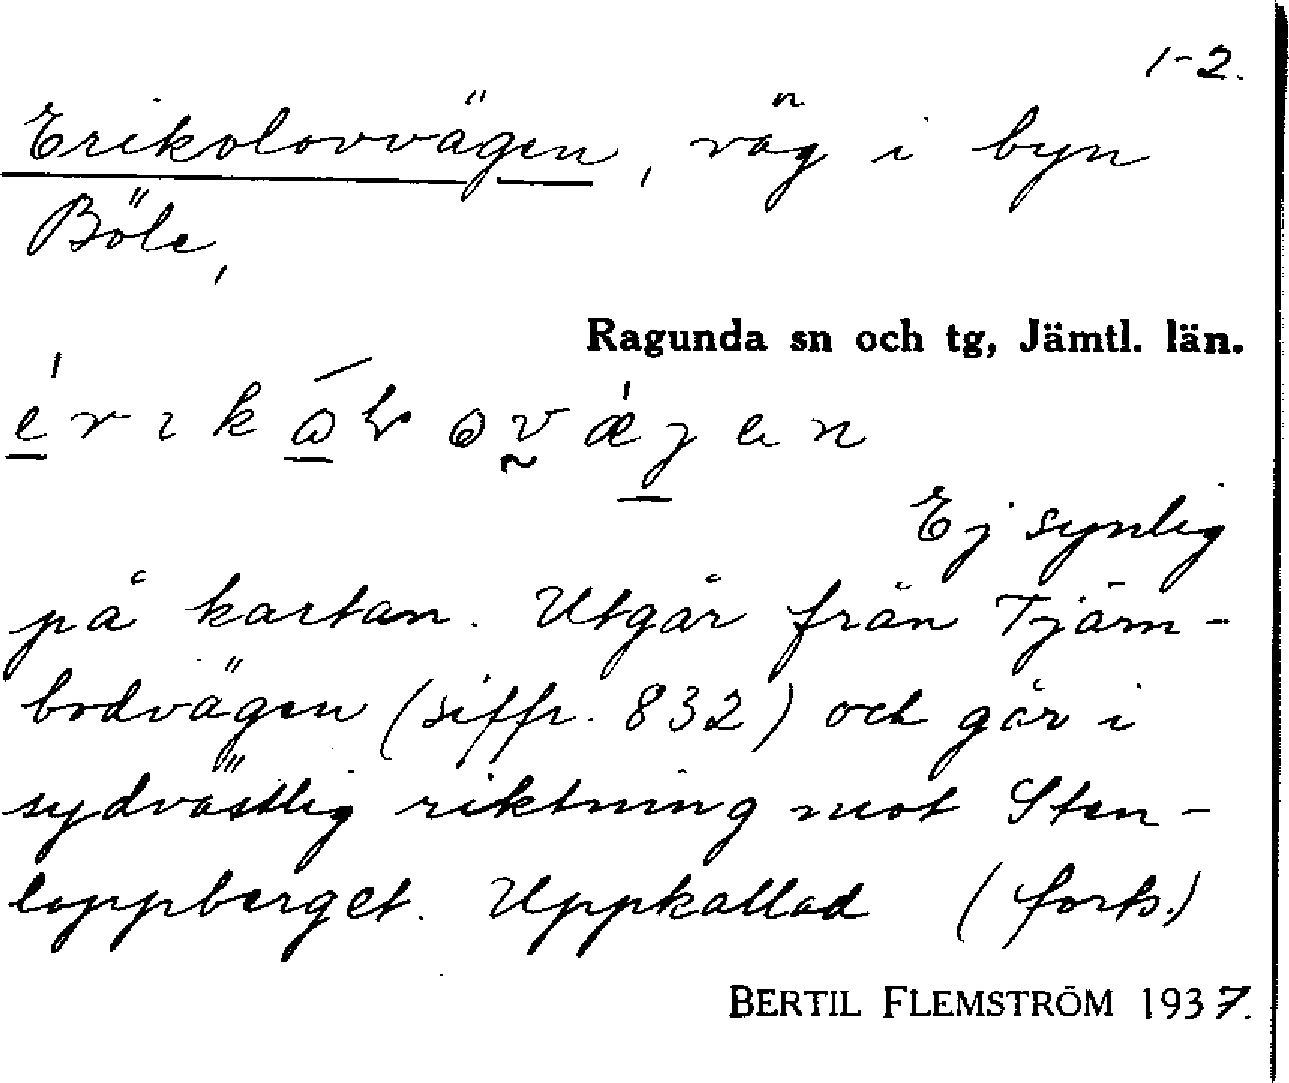 1-2.
Erikolovvägen, väg i byn
Böle,
Ragunda sn och tg, Jämtl. län.
Ej synlig
på kartan. Utgår från Tjärn-
bodvägen (siffr. 832) och går i
sydvästlig riktning mot Sten-
loppberget. Uppkallad (forts.)
BERTIL FLEMSTRÖM 1937.